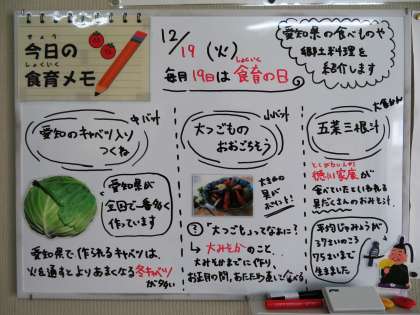 きょう
今日の
しょくいく
食育メモ
12/19(火)
しょくいく
毎月19日は食育の日
愛知県の食べものや
郷土料理を
紹介します
中バット
愛知のキャベツ入り
つくね
愛知県が
全国で一番多く
作っています
愛知県で作られるキャベツは、
火を通すとよりあまくなる冬キャベツ
が多い
小バット
大つごもの
おおごちそう
大きめの
具が
ポイント!
?「大つごも」ってなあに?
→大みそかのこと。
大みそかまでに作り、
お正月の間、あたため直して食べる
大食かん
五菜三根汁
とくがわいえやす
徳川家康が
食べていたといわれる
具だくさんのおみそ汁
平均じゅみょうが
37さいのころ
75さいまで
生きました